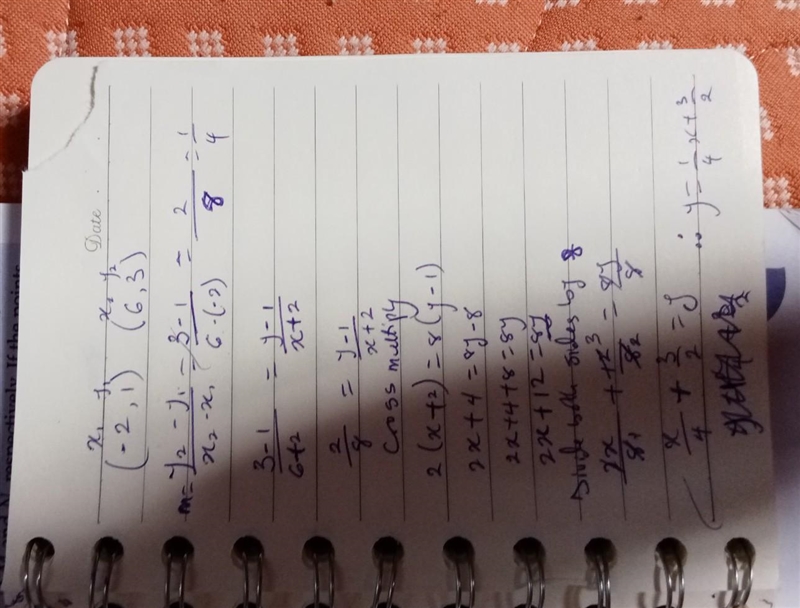 Date
x₁ y₁ x₂ y₂
(-2, 1) (6, 3)
m = y₂ - y₁ / x₂ - x₁ = 3-1 / 6-(-2) = 2/8 = 1/4
3-1 / 6+2 = y-1 / x+2
2/8 = y-1 / x+2
Cross multiply
2(x+2) = 8(y-1)
2x+4 = 8y-8
2x+4+8 = 8y
2x+12 = 8y
Divide both sides by 8
2x/8 + 12/8 = 8y/8
x/4 + 3/2 = y ∴ y = 1/4 x + 3/2
respectively. If the points